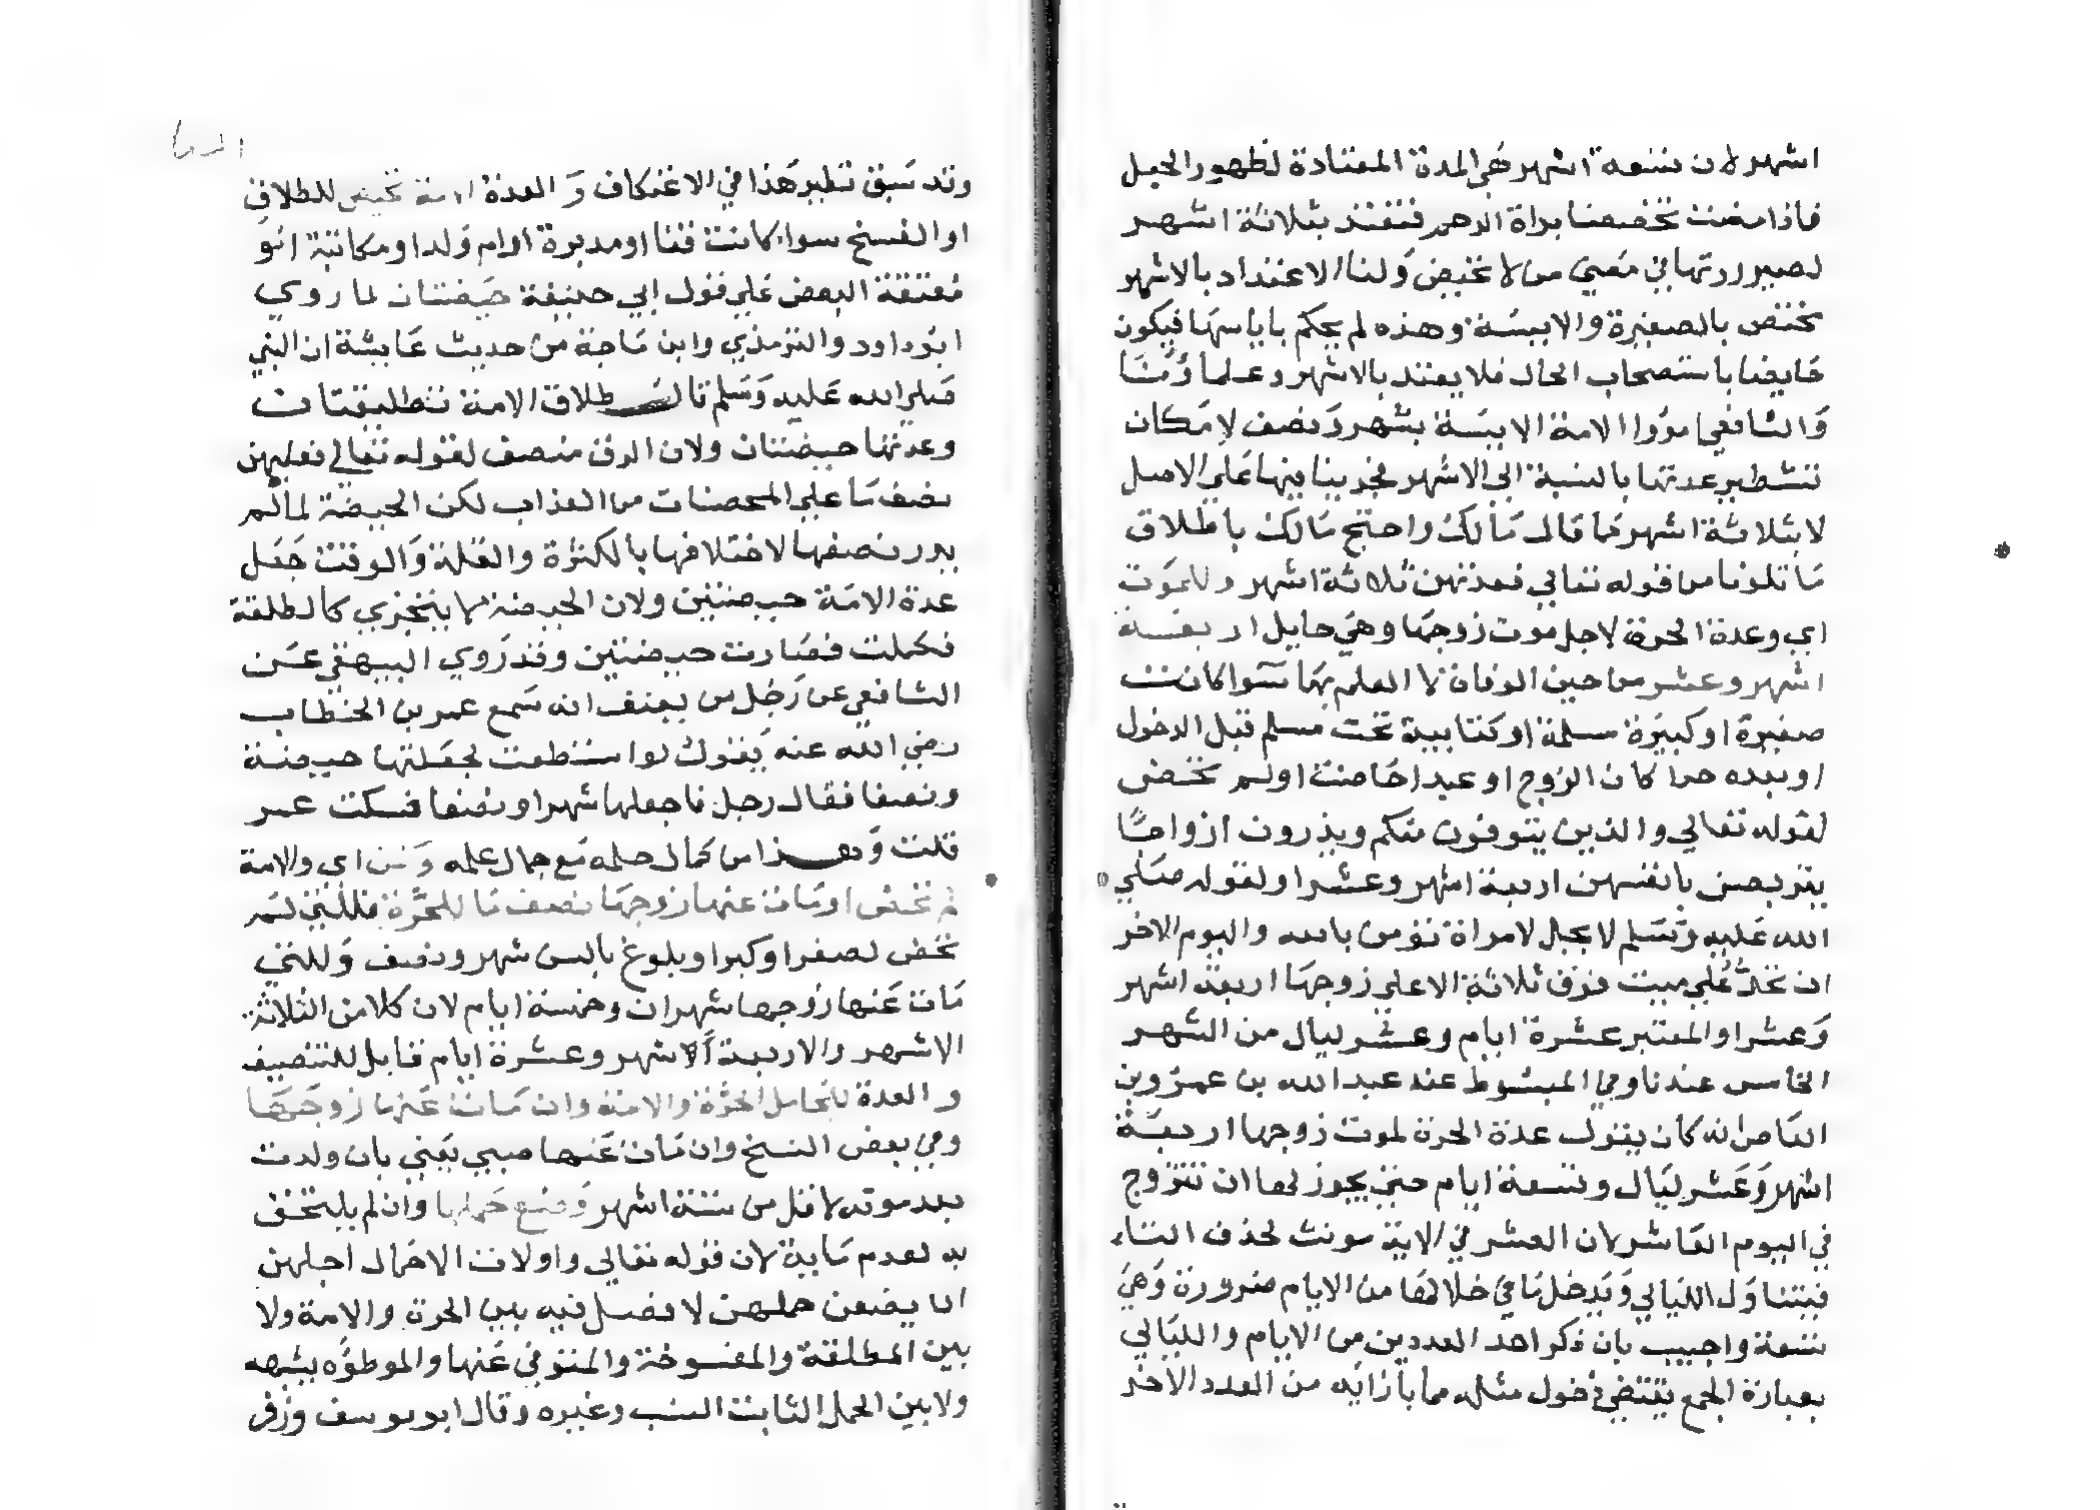 اشهر لان تسعة اشهر هي المدة المعتادة لظهور الحبل
فاذا مضت تخصصنا براة الرحم فتعتد بثلاثة اشهر
لصيرورتها في معنى من لا تحيض ولنا الاعتداد بالاشهر
تختص بالصغيرة والايسة وهذه لم يحكم باياسها فيكون
حايضا باستصحاب الحال فلا يعتد بالاشهر وعلماؤنا
والشافعي امروا الامة الايسة بشهر ونصف لامكان
تشطير عدتها بالنسبة الى الاشهر فجرينا فيها على الاصل
لا بثلاثة اشهر كما قال مالك واحتج مالك باطلاق
ما تلونا من قوله تعالى فعدتهن ثلاثة اشهر وللموت
اي وعدة الحرة لاجل موت زوجها وهي حايل اربعة
اشهر وعشر من حين الوفاة لا العلم بها سوا كانت
صغيرة او كبيرة مسلمة او كتابية تحت مسلم قبل الدخول
او بعده حرا كان الزوج او عبدا حاضت او لم تحض
لقوله تعالى والذين يتوفون منكم ويذرون ازواجا
يتربصن بانفسهن اربعة اشهر وعشرا ولقوله صلى
الله عليه وسلم لا يحل لامراة تؤمن بالله واليوم الاخر
ان تحد على ميت فوق ثلاثة الا على زوجها اربعة اشهر
وعشرا والمعتبر عشرة ايام وعشر ليال من الشهر
الخامس عندنا وفي المبسوط عند عبد الله بن عمرو بن
العاص انه كان يقول عدة الحرة لموت زوجها اربعة
اشهر وعشر ليال وتسعة ايام حتى يجوز لها ان تتزوج
في اليوم العاشر لان العشر في الاية مونث لحذف التاء
فيتناول الليالي ويدخل ما في خلالها من الايام ضرورة وهي
تسعة واجيب بان ذكر احد العددين من الايام والليالي
بعبارة الجمع يقتضي دخول مثله مما بازايه من العدد الاخر
وقد سبق نظير هذا في الاعتكاف و العدة لامة تحيض للطلاق
او الفسخ سوا كانت قنا او مدبرة او ام ولد او مكاتبة او
معتقة البعض على قول ابي حنيفة حيضتان لما روي
ابو داود والترمذي وابن ماجة من حديث عايشة ان النبي
صلى الله عليه وسلم قال طلاق الامة تطليقتان
وعدتها حيضتان ولان الرق منصف لقوله تعالى فعليهن
نصف ما على المحصنات من العذاب لكن الحيضة لما لم
يدر نصفها لاختلافها بالكثرة والقلة والوقت جعل
عدة الامة حيضتين ولان الحيضة لا يتجزي كالطلقة
فكملت فصارت حيضتين وقد روي البيهقي عن
الشافعي عن رجل من يعنف انه سمع عمر بن الخطاب
رضي الله عنه يقول لو استطعت لجعلتها حيضة
ونصفا فقال رجل فاجعلها شهرا ونصفا فسكت عمر
قلت وهذا من كمال حلمه مع جمال علمه و اي والامة
لم تحض او مات عنها زوجها نصف ما للحرة فللتي لم
تحض لصغر او كبر او بلوغ بالسن شهر ونصف وللتي
مات عنها زوجها شهران وخمسة ايام لان كلا من الثلاثة
الاشهر والاربعة الاشهر وعشرة ايام قابل للتنصيف
و العدة للحامل الحرة والامة وان مات عنها زوجها
وفي بعض النسخ وان مات عنها صبي يعني بان ولدت
بعد موته لاقل من ستة اشهر وضع حملها وان لم يلتحق
به لعدم مايه لان قوله تعالى واولات الاحمال اجلهن
ان يضعن حملهن لا فصل فيه بين الحرة والامة ولا
بين المطلقة والمفسوخة والمتوفي عنها والموطؤه بشبهه
ولا بين الحمل الثابت النسب وغيره وقال ابو يوسف وزفر